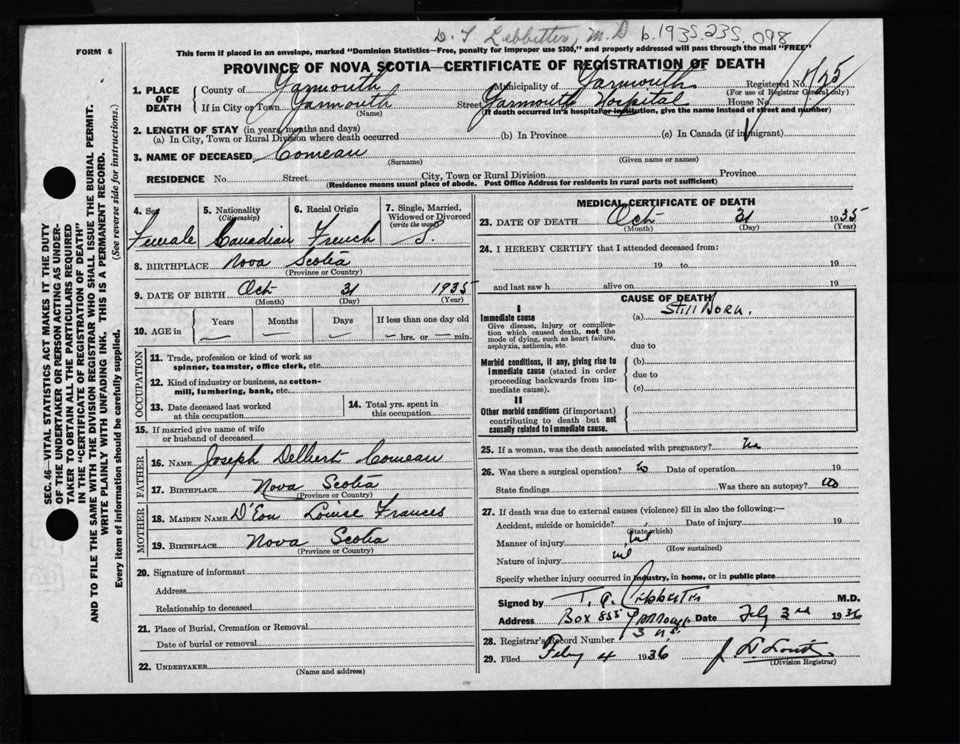 D. T. Lebbetter, M.D b.1935.235.098
FORM 6
This form if placed in an envelope, marked "Dominion Statistics—Free, penalty for improper use $300," and properly addressed will pass through the mail "FREE"
PROVINCE OF NOVA SCOTIA—CERTIFICATE OF REGISTRATION OF DEATH
1. PLACE OF DEATH
County of Yarmouth Municipality of Yarmouth Registered No.
(For use of Registrar General only)
If in City or Town Yarmouth Street Yarmouth Hospital House No.
(Name) (If death occurred in a hospital or institution, give the name instead of street and number)
2. LENGTH OF STAY (in years, months and days)
(a) In City, Town or Rural Division where death occurred (b) In Province (c) In Canada (if immigrant)
3. NAME OF DECEASED Comeau
(Surname) (Given name or names)
RESIDENCE No. Street City, Town or Rural Division Province
(Residence means usual place of abode. Post Office Address for residents in rural parts not sufficient)
4. Sex 5. Nationality (Citizenship) 6. Racial Origin 7. Single, Married, Widowed or Divorced (write the word)
Female Canadian French S.
8. BIRTHPLACE Nova Scotia
(Province or Country)
9. DATE OF BIRTH Oct 31 1935
(Month) (Day) (Year)
10. AGE in Years Months Days If less than one day old
— — — — hrs. or — min.
OCCUPATION
11. Trade, profession or kind of work as
spinner, teamster, office clerk, etc.
12. Kind of industry or business, as cotton-
mill, lumbering, bank, etc.
13. Date deceased last worked
at this occupation
14. Total yrs. spent in
this occupation
15. If married give name of wife
or husband of deceased
FATHER
16. NAME Joseph Delbert Comeau
17. BIRTHPLACE Nova Scotia
(Province or Country)
MOTHER
18. MAIDEN NAME D'Eon Louise Frances
19. BIRTHPLACE Nova Scotia
(Province or Country)
20. Signature of informant
Address
Relationship to deceased
21. Place of Burial, Cremation or Removal
Date of burial or removal
22. UNDERTAKER
(Name and address)
MEDICAL CERTIFICATE OF DEATH
23. DATE OF DEATH Oct 31 1935
(Month) (Day) (Year)
24. I HEREBY CERTIFY that I attended deceased from:
19 to 19
and last saw h alive on 19
CAUSE OF DEATH
I
Immediate cause (a) Still Born.
Give disease, injury or complica-
tion which caused death, not the
mode of dying, such as heart failure,
asphyxia, asthenia, etc. due to
Morbid conditions, if any, giving rise to (b)
immediate cause (stated in order due to
proceeding backwards from im-
mediate cause). (c)
II
Other morbid conditions (if important)
contributing to death but not
causally related to immediate cause.
25. If a woman, was the death associated with pregnancy?
26. Was there a surgical operation? Date of operation 19
State findings Was there an autopsy?
27. If death was due to external causes (violence) fill in also the following:—
Accident, suicide or homicide? Date of injury 19
(State which)
Manner of injury nil
(How sustained)
Nature of injury nil
Specify whether injury occurred in industry, in home, or in public place
Signed by M.D.
Address Box 855 Date Feby 3rd 1936
28. Registrar's Record Number
29. Filed Feby 4 1936
(Division Registrar)
SEC. 46—VITAL STATISTICS ACT MAKES IT THE DUTY
OF THE UNDERTAKER OR PERSON ACTING AS UNDER-
TAKER TO OBTAIN ALL THE PARTICULARS REQUIRED
IN THE "CERTIFICATE OF REGISTRATION OF DEATH"
AND TO FILE THE SAME WITH THE DIVISION REGISTRAR WHO SHALL ISSUE THE BURIAL PERMIT.
WRITE PLAINLY WITH UNFADING INK. THIS IS A PERMANENT RECORD.
Every item of information should be carefully supplied. (See reverse side for instructions.)